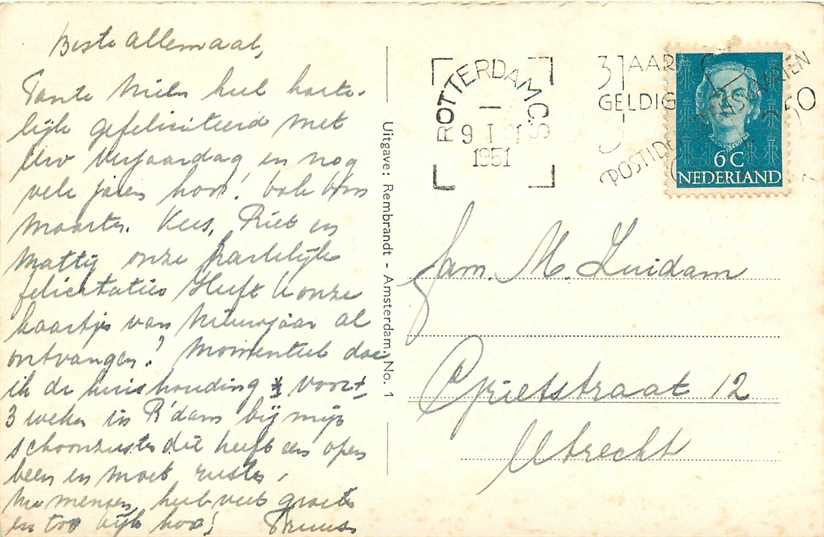 Beste allemaal,
Tante Mien heel harte-
lijk gefeliciteerd met
Uw verjaardag en nog
vele jaren hoor! ook Oom
Maarten. Kees, Riet en
Matty onze hartelijke
felicitaties Heeft U onze
kaartje van Nieuwjaar al
ontvangen? Momenteel doe
ik de huishouding voor ±
3 weken in R'dam bij mijn
schoonzuster die heeft een open
been en moet rusten.
Nu mensen, heel veel groeten
en tot kijk hoor! Truus
Uitgave: Rembrandt - Amsterdam. No. 1
ROTTERDAM C.S
9 I
1951
3 JAAR
GELDIG
POSTIDE
6 C
NEDERLAND
Fam. M. Zuidam
Grietstraat 12
Utrecht